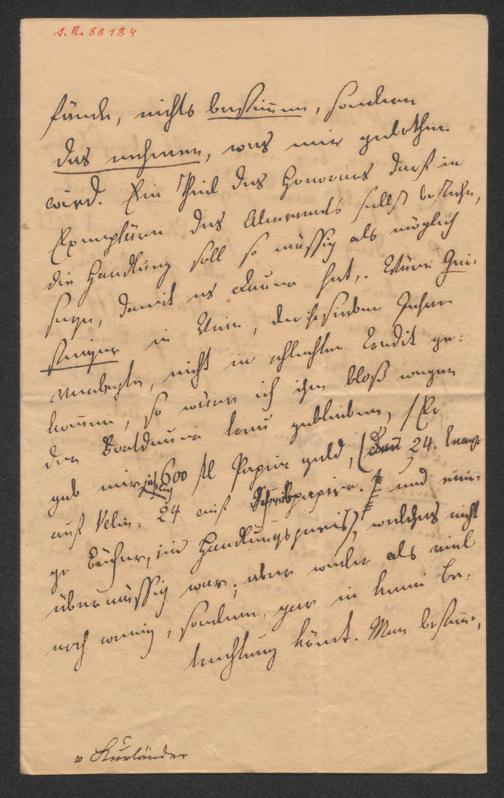 J. N. 88184
fände, nichts bestimmen, sondern
das nehmen, was mir gebothen
wird. Ein Theil des Honorars darf in
Exemplaren des Almanachs selbst bestehen,
die Handlung soll so mässig als möglich
seyn, damit es Dauer hat. Wäre
in Wien, der sieben Jahre
verlegte, nicht in schlechten Credit ge-
kommen, so wäre ich ihm bloß wegen
der Fortdauer treu geblieben, Er
gab mir jährlich 600 fl Papier geld, 24 Exempl
auf Velin, 24 auf Schreibpapier und eini-
ge Bücher, im Handlungspreis, welches nicht
übermässig war, aber weder als viel
noch wenig, sondern gar in keine Be-
trachtung kömt. Man bestimme,
v Kurländer